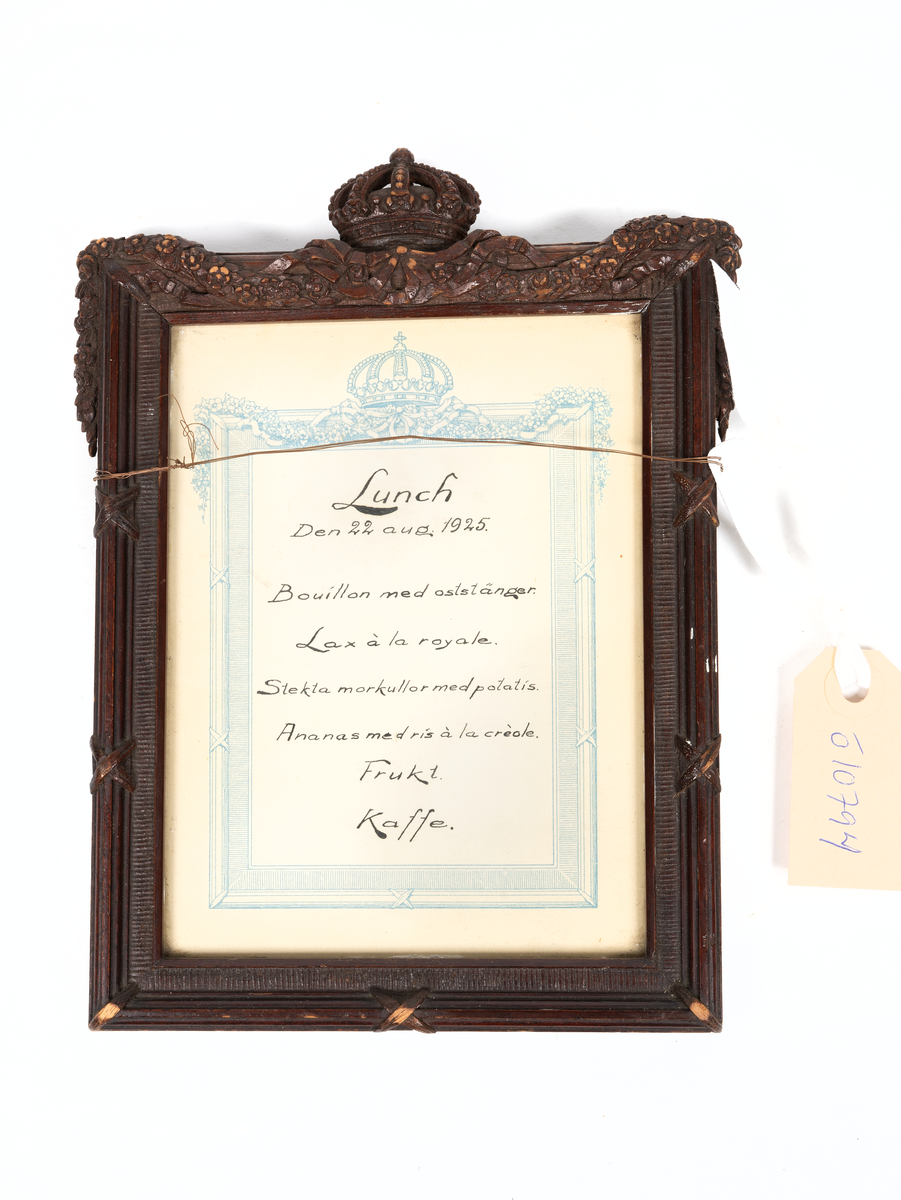 Lunch
Den 22 aug. 1925.
Bouillon med oststänger.
Lax à la royale.
Stekta morkullor med potatis.
Ananas med ris à la crèole.
Frukt.
Kaffe.